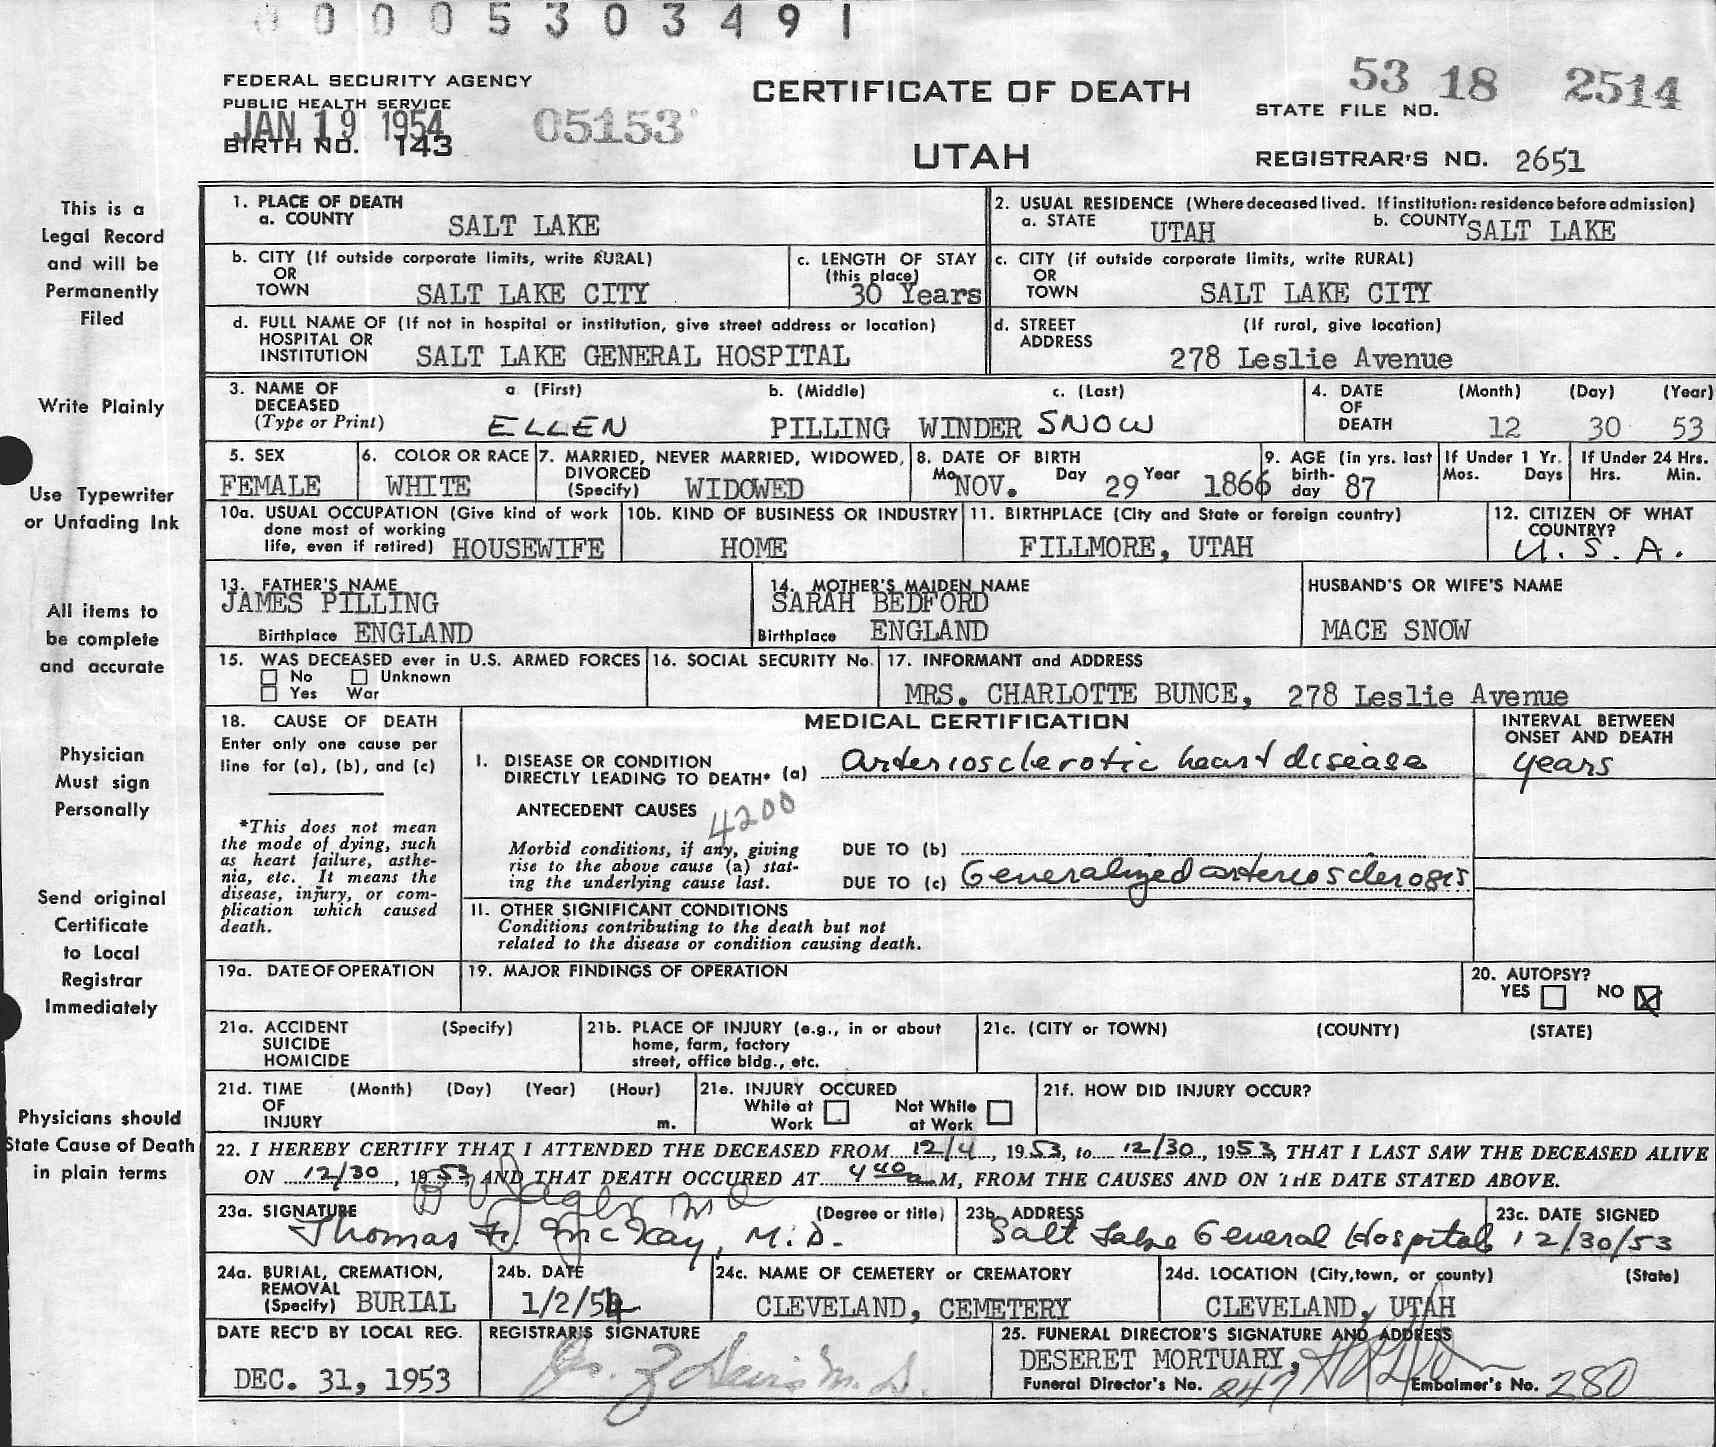 0 0 0 0 5 3 0 3 4 9 1
FEDERAL SECURITY AGENCY
PUBLIC HEALTH SERVICE
JAN 19 1954
BIRTH NO. 143
05153
CERTIFICATE OF DEATH
UTAH
53 18 2514
STATE FILE NO.
REGISTRAR'S NO. 2651
This is a
Legal Record
and will be
Permanently
Filed
Write Plainly
Use Typewriter
or Unfading Ink
All items to
be complete
and accurate
Physician
Must sign
Personally
Send original
Certificate
to Local
Registrar
Immediately
Physicians should
State Cause of Death
in plain terms
1. PLACE OF DEATH
a. COUNTY SALT LAKE
2. USUAL RESIDENCE (Where deceased lived. If institution: residence before admission)
a. STATE UTAH b. COUNTY SALT LAKE
b. CITY (If outside corporate limits, write RURAL)
OR
TOWN SALT LAKE CITY
c. LENGTH OF STAY
(this place)
30 Years
c. CITY (if outside corporate limits, write RURAL)
OR
TOWN SALT LAKE CITY
d. FULL NAME OF (If not in hospital or institution, give street address or location)
HOSPITAL OR
INSTITUTION SALT LAKE GENERAL HOSPITAL
d. STREET (If rural, give location)
ADDRESS
278 Leslie Avenue
3. NAME OF a. (First) b. (Middle) c. (Last)
DECEASED
(Type or Print) ELLEN PILLING WINDER SNOW
4. DATE (Month) (Day) (Year)
OF
DEATH 12 30 53
5. SEX
FEMALE
6. COLOR OR RACE
WHITE
7. MARRIED, NEVER MARRIED, WIDOWED,
DIVORCED
(Specify) WIDOWED
8. DATE OF BIRTH
Mo. NOV. Day 29 Year 1866
9. AGE (in yrs. last
birth-
day 87
If Under 1 Yr.
Mos. Days
If Under 24 Hrs.
Hrs. Min.
10a. USUAL OCCUPATION (Give kind of work
done most of working
life, even if retired) HOUSEWIFE
10b. KIND OF BUSINESS OR INDUSTRY
HOME
11. BIRTHPLACE (City and State or foreign country)
FILLMORE, UTAH
12. CITIZEN OF WHAT
COUNTRY?
U. S. A.
13. FATHER'S NAME
JAMES PILLING
Birthplace ENGLAND
14. MOTHER'S MAIDEN NAME
SARAH BEDFORD
Birthplace ENGLAND
HUSBAND'S OR WIFE'S NAME
MACE SNOW
15. WAS DECEASED ever in U.S. ARMED FORCES
No Unknown
Yes War
16. SOCIAL SECURITY No.
17. INFORMANT and ADDRESS
MRS. CHARLOTTE BUNCE, 278 Leslie Avenue
18. CAUSE OF DEATH
Enter only one cause per
line for (a), (b), and (c)
*This does not mean
the mode of dying, such
as heart failure, asthe-
nia, etc. It means the
disease, injury, or com-
plication which caused
death.
MEDICAL CERTIFICATION
I. DISEASE OR CONDITION
DIRECTLY LEADING TO DEATH* (a) arteriosclerotic heart disease
ANTECEDENT CAUSES
4200
Morbid conditions, if any, giving
rise to the above cause (a) stat-
ing the underlying cause last.
DUE TO (b)
DUE TO (c) Generalized arteriosclerosis
INTERVAL BETWEEN
ONSET AND DEATH
years
II. OTHER SIGNIFICANT CONDITIONS
Conditions contributing to the death but not
related to the disease or condition causing death.
19a. DATE OF OPERATION
19. MAJOR FINDINGS OF OPERATION
20. AUTOPSY?
YES NO
21a. ACCIDENT (Specify)
SUICIDE
HOMICIDE
21b. PLACE OF INJURY (e.g., in or about
home, farm, factory
street, office bldg., etc.
21c. (CITY or TOWN) (COUNTY) (STATE)
21d. TIME (Month) (Day) (Year) (Hour)
OF
INJURY m.
21e. INJURY OCCURED
While at Not While
Work at Work
21f. HOW DID INJURY OCCUR?
22. I HEREBY CERTIFY THAT I ATTENDED THE DECEASED FROM 12/4, 1953, to 12/30, 1953, THAT I LAST SAW THE DECEASED ALIVE
ON 12/30, 1953 AND THAT DEATH OCCURED AT 4 40 a.M, FROM THE CAUSES AND ON THE DATE STATED ABOVE.
23a. SIGNATURE (Degree or title)
Thomas F. McKay, M.D.
23b. ADDRESS
Salt Lake General Hospital
23c. DATE SIGNED
12/30/53
24a. BURIAL, CREMATION,
REMOVAL
(Specify) BURIAL
24b. DATE
1/2/54
24c. NAME OF CEMETERY or CREMATORY
CLEVELAND, CEMETERY
24d. LOCATION (City, town, or county) (State)
CLEVELAND, UTAH
DATE REC'D BY LOCAL REG.
DEC. 31, 1953
REGISTRAR'S SIGNATURE
M. D.
25. FUNERAL DIRECTOR'S SIGNATURE AND ADDRESS
DESERET MORTUARY,
Funeral Director's No. 247 Embalmer's No. 280